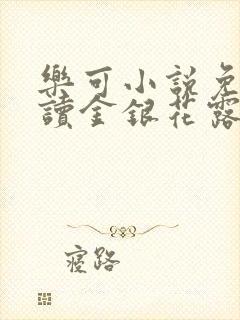 樂可小說免
讀金銀花露
寢路